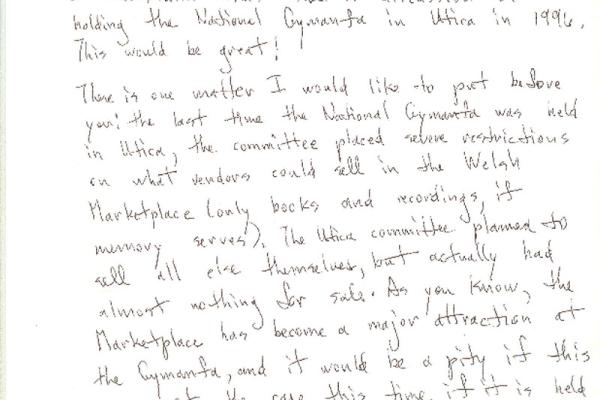 holding the National Gymanfa in Utica in 1996.
This would be great!
There is one matter I would like to put before
you: the last time the National Gymanfa was held
in Utica, the committee placed severe restrictions
on what vendors could sell in the Welsh
Marketplace (only books and recordings, if
memory serves). The Utica committee planned to
sell all else themselves, but actually had
almost nothing for sale. As you know, the
Marketplace has become a major attraction at
the Gymanfa, and it would be a pity if this
the case this time, if it is held